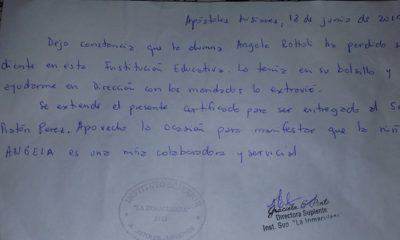 Apóstoles Misiones, 18 de junio de 201
Dejo constancia que la alumna Angela Rottoli ha perdido su
diente en esta Institución Educativa. Lo tenía en su bolsillo y
ayudarme en Dirección con los mandados lo extravió.
Se extiende el presente certificado para ser entregado al S
Ratón Perez. Aprovecho la ocasión para manifestar que la niñ
ANGELA es una niña colaboradora y servicial
INSTITUTO SUPERIOR
Graciela
Directora Suplente
Inst. Sup "La Inmaculada